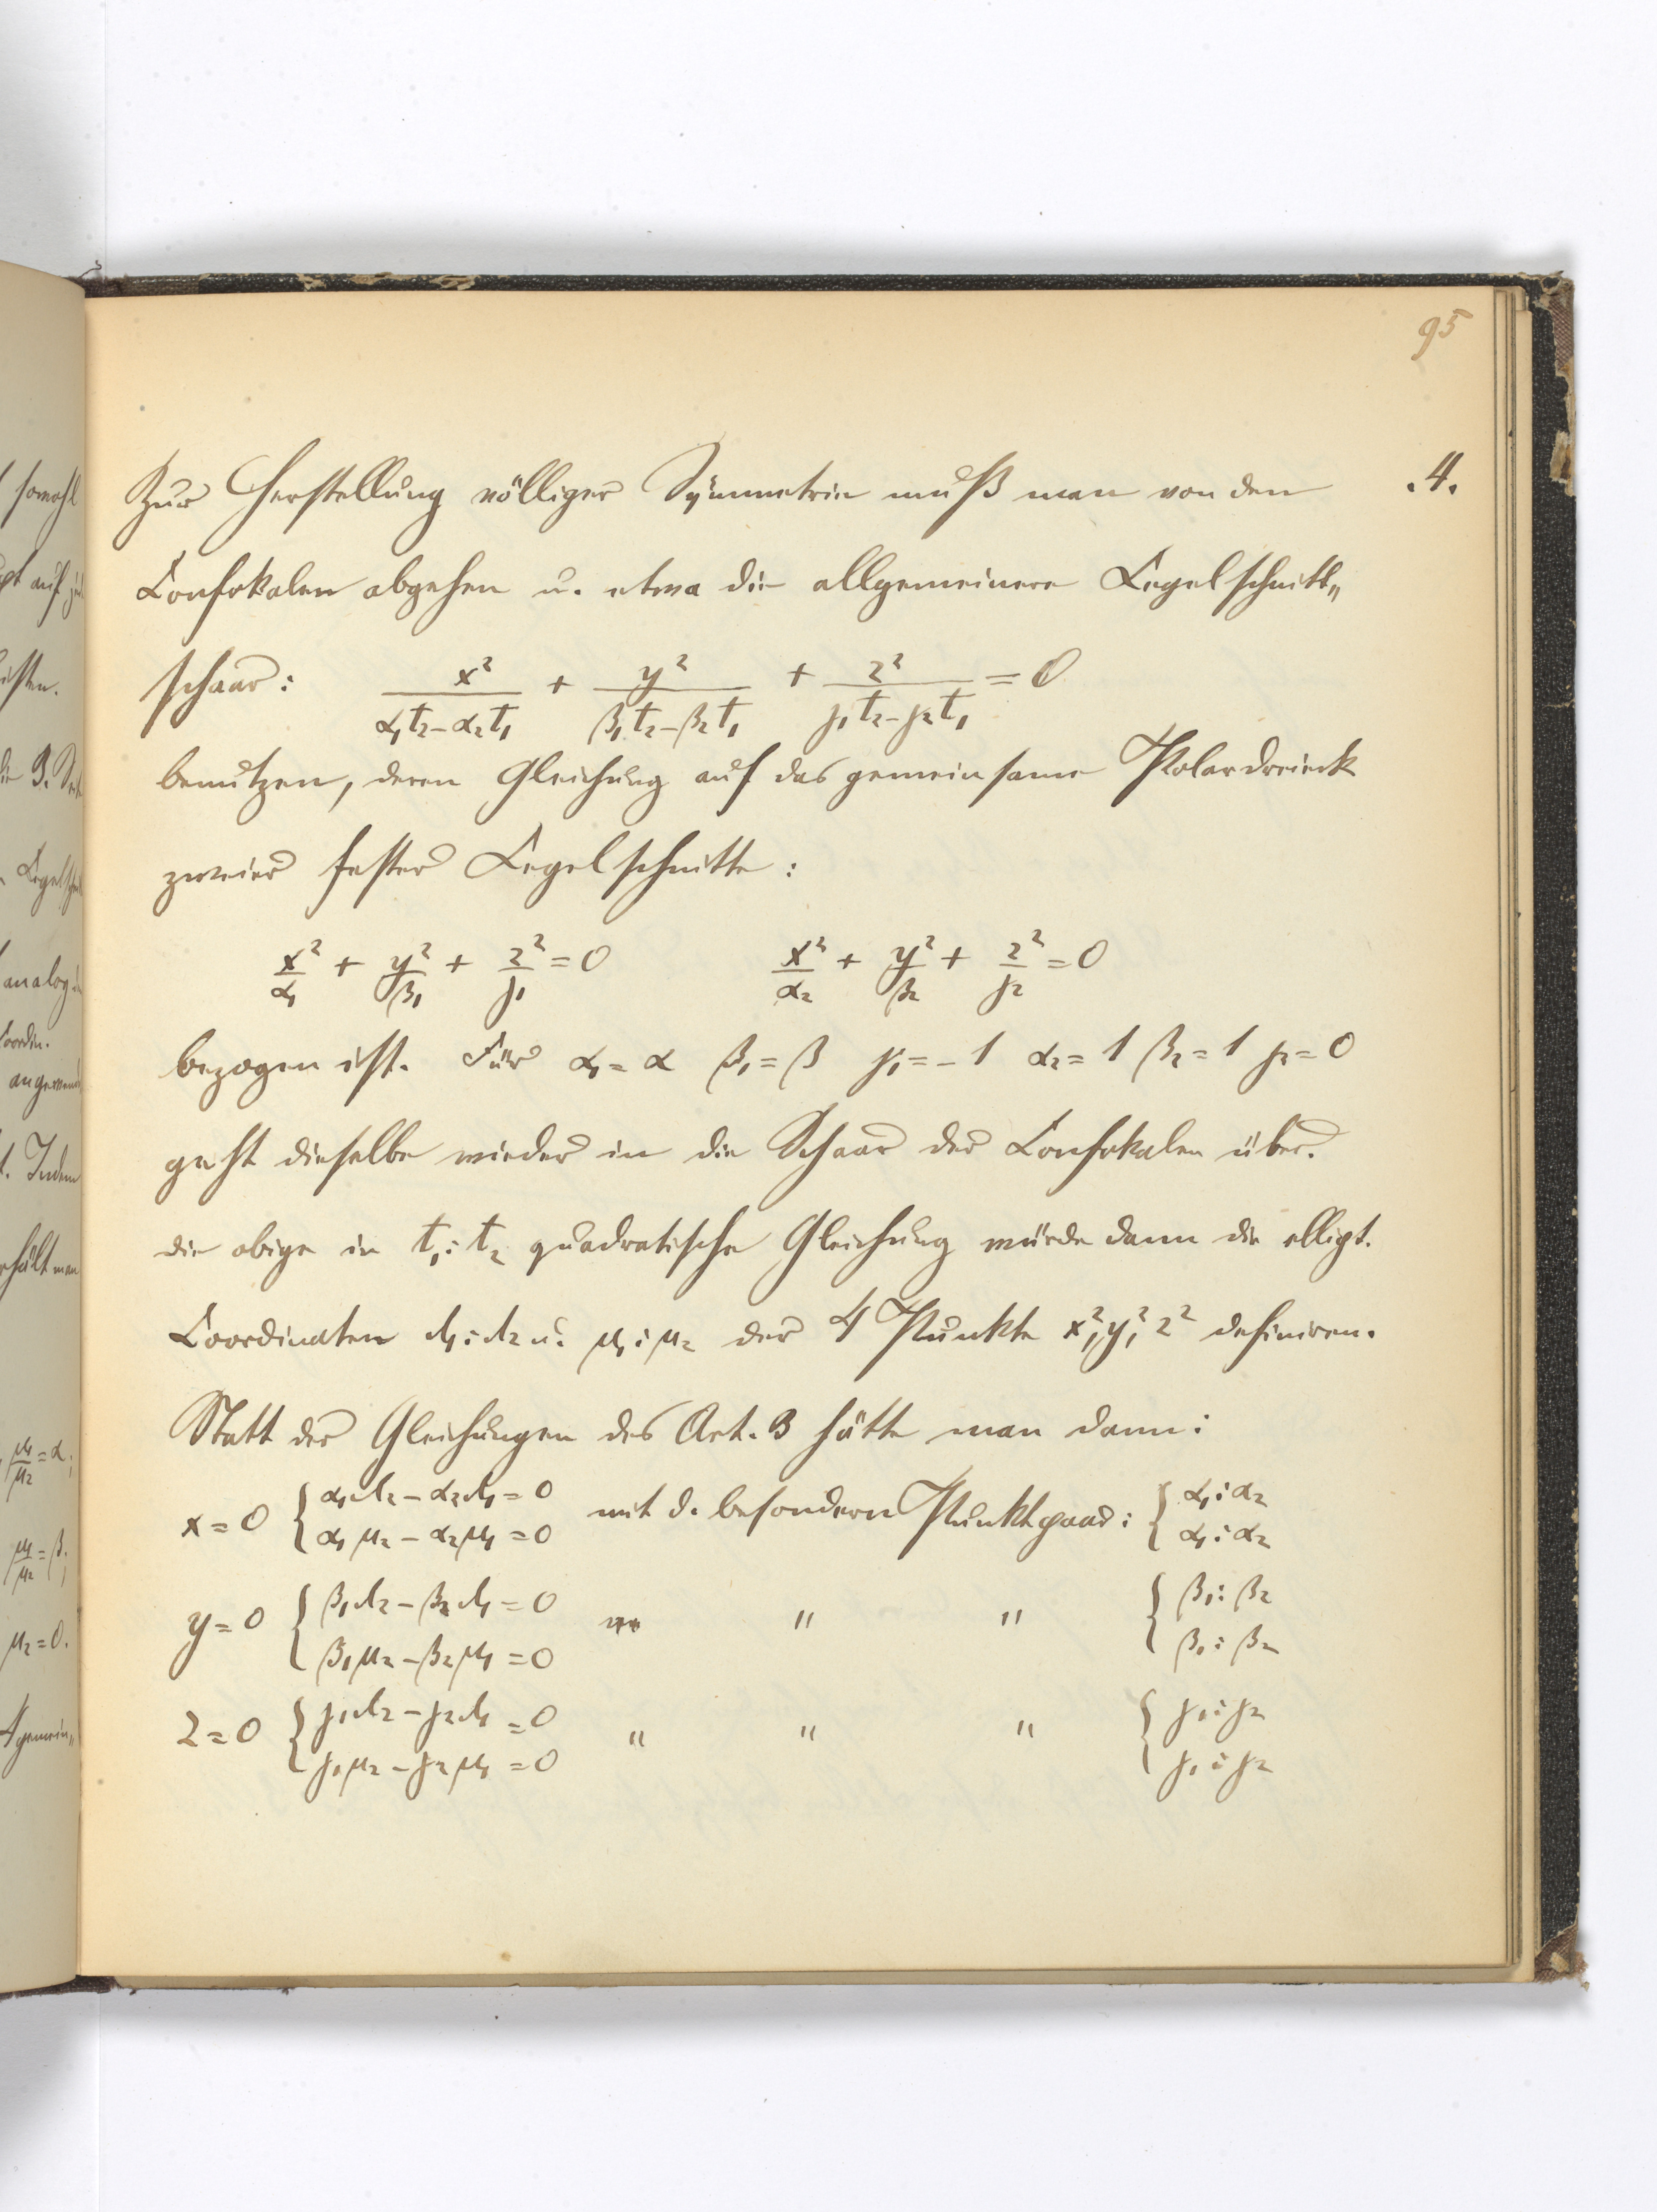 95
Zur Herstellung völliger Symmetrie muß man von den .4.
Confokalen abgehen u. etwa die allgemeinere Kegelschnitt„
schaar: x²/(α₁t₂−α₂t₁) + y²/(β₁t₂−β₂t₁) + z²/(γ₁t₂−γ₂t₁) = 0
benutzen, deren Gleichung auf das gemeinsame Polardreieck
zweier fester Kegelschnitte:
x²/α₁ + y²/β₁ + z²/γ₁ = 0 x²/α₂ + y²/β₂ + z²/γ₂ = 0
bezogen ist. Für α₁ = α β₁ = β γ₁ = −1 α₂ = 1 β₂ = 1 γ₂ = 0
geht dieselbe wieder in die Schaar der Confokalen über.
die obige in t₁:t₂ quadratische Gleichung würde dann die ellipt.
Coordinaten λ₁:λ₂ u. μ₁:μ₂ der 4 Punkte x², y², z² definiren.
Statt der Gleichungen des Art. 3 hätte man dann:
x = 0 { α₁λ₂ − α₂λ₁ = 0 mit d. besondern Punktpaar: { α₁:α₂
α₁μ₂ − α₂μ₁ = 0 α₁:α₂
y = 0 { β₁λ₂ − β₂λ₁ = 0 " " " { β₁:β₂
β₁μ₂ − β₂μ₁ = 0 β₁:β₂
z = 0 { γ₁λ₂ − γ₂λ₁ = 0 " " " { γ₁:γ₂
γ₁μ₂ − γ₂μ₁ = 0 γ₁:γ₂